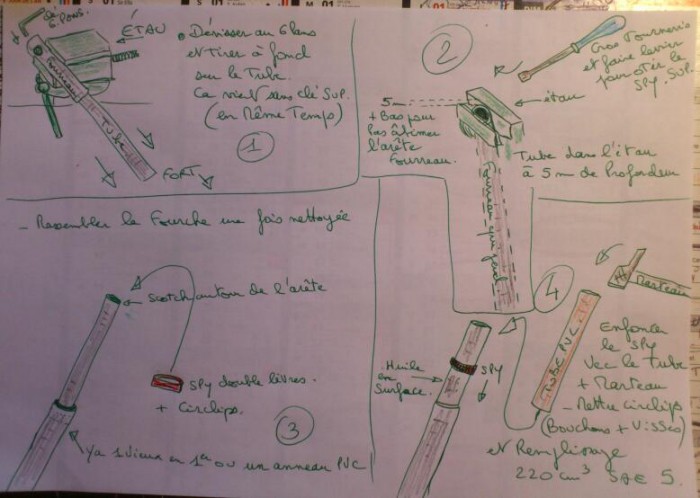 6 Pans.
ÉTAU
Fourreau
Tube
• Dévisser au 6 Pans
et Tirer à fond
sur le Tube.
Ca vient sans clé sup.
(en Même Temps)
1
FORT
2
Gros Tournevis
et faire levier
pour ôter le
SPY. SUP.
étau
5 m
+ Bas pour
pas abîmer
l'arête
Fourreau.
Tube dans l'étau
à 5 mm de Profondeur
Fourreau qui pend
- Rassembler la Fourche une fois nettoyée
Scotch autour de l'arête
SPY double lèvres.
+ Circlips.
3
Ya 1 Vieux en 1er ou un anneau PVC
4
Marteau
TUBE PVC
Huile
en
Surface.
SPY
Enfoncer
le SPY
Vec le tube
+ Marteau
- Mettre circlips
(Bouchons + Visses)
et Remplissage
220 cm³ SAE 5.